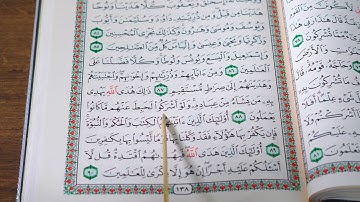 وَنُوحًا هَدَيْنَا مِن قَبْلُ وَمِن ذُرِّيَّتِهِۦ دَاوُۥدَ وَسُلَيْمَٰنَ وَأَيُّوبَ
وَيُوسُفَ وَمُوسَىٰ وَهَٰرُونَ وَكَذَٰلِكَ نَجْزِى ٱلْمُحْسِنِينَ ٨٤
وَزَكَرِيَّا وَيَحْيَىٰ وَعِيسَىٰ وَإِلْيَاسَ كُلٌّ مِّنَ ٱلصَّٰلِحِينَ ٨٥
وَإِسْمَٰعِيلَ وَٱلْيَسَعَ وَيُونُسَ وَلُوطًا وَكُلًّا فَضَّلْنَا عَلَى
ٱلْعَٰلَمِينَ ٨٦ وَمِنْ ءَابَآئِهِمْ وَذُرِّيَّٰتِهِمْ وَإِخْوَٰنِهِمْ وَٱجْتَبَيْنَٰهُمْ
وَهَدَيْنَٰهُمْ إِلَىٰ صِرَٰطٍ مُّسْتَقِيمٍ ٨٧ ذَٰلِكَ هُدَى ٱللَّهِ يَهْدِى
بِهِۦ مَن يَشَآءُ مِنْ عِبَادِهِۦ وَلَوْ أَشْرَكُوا۟ لَحَبِطَ عَنْهُم مَّا كَانُوا۟
يَعْمَلُونَ ٨٨ أُو۟لَٰٓئِكَ ٱلَّذِينَ ءَاتَيْنَٰهُمُ ٱلْكِتَٰبَ وَٱلْحُكْمَ وَٱلنُّبُوَّةَ
فَإِن يَكْفُرْ بِهَا هَٰٓؤُلَآءِ فَقَدْ وَكَّلْنَا بِهَا قَوْمًا لَّيْسُوا۟ بِهَا بِكَٰفِرِينَ
٨٩ أُو۟لَٰٓئِكَ ٱلَّذِينَ هَدَى ٱللَّهُ فَبِهُدَىٰهُمُ ٱقْتَدِهْ قُل لَّآ
أَسْـَٔلُكُمْ عَلَيْهِ أَجْرًا إِنْ هُوَ إِلَّا ذِكْرَىٰ لِلْعَٰلَمِينَ ٩٠
١٣٨